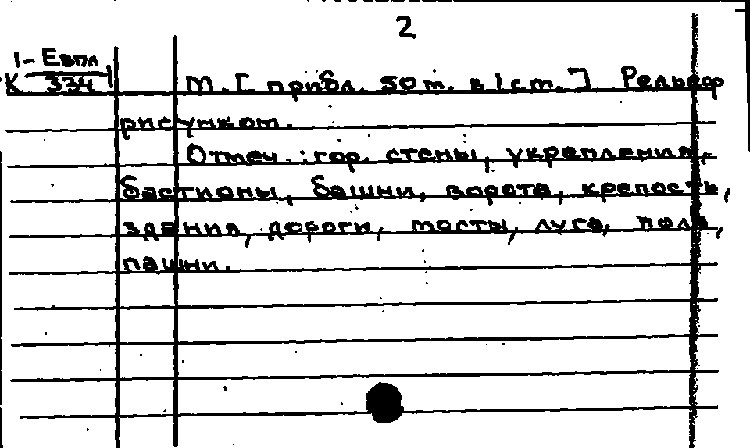 2
1-Евпл
К 334
М. [прибл. 50 m. в 1 cm.] Рельеф
рисунком.
Отмеч.: гор. стены, укрепления,
бастионы, башни, ворота, крепость,
здания, дороги, мосты, луга, поля,
пашни.